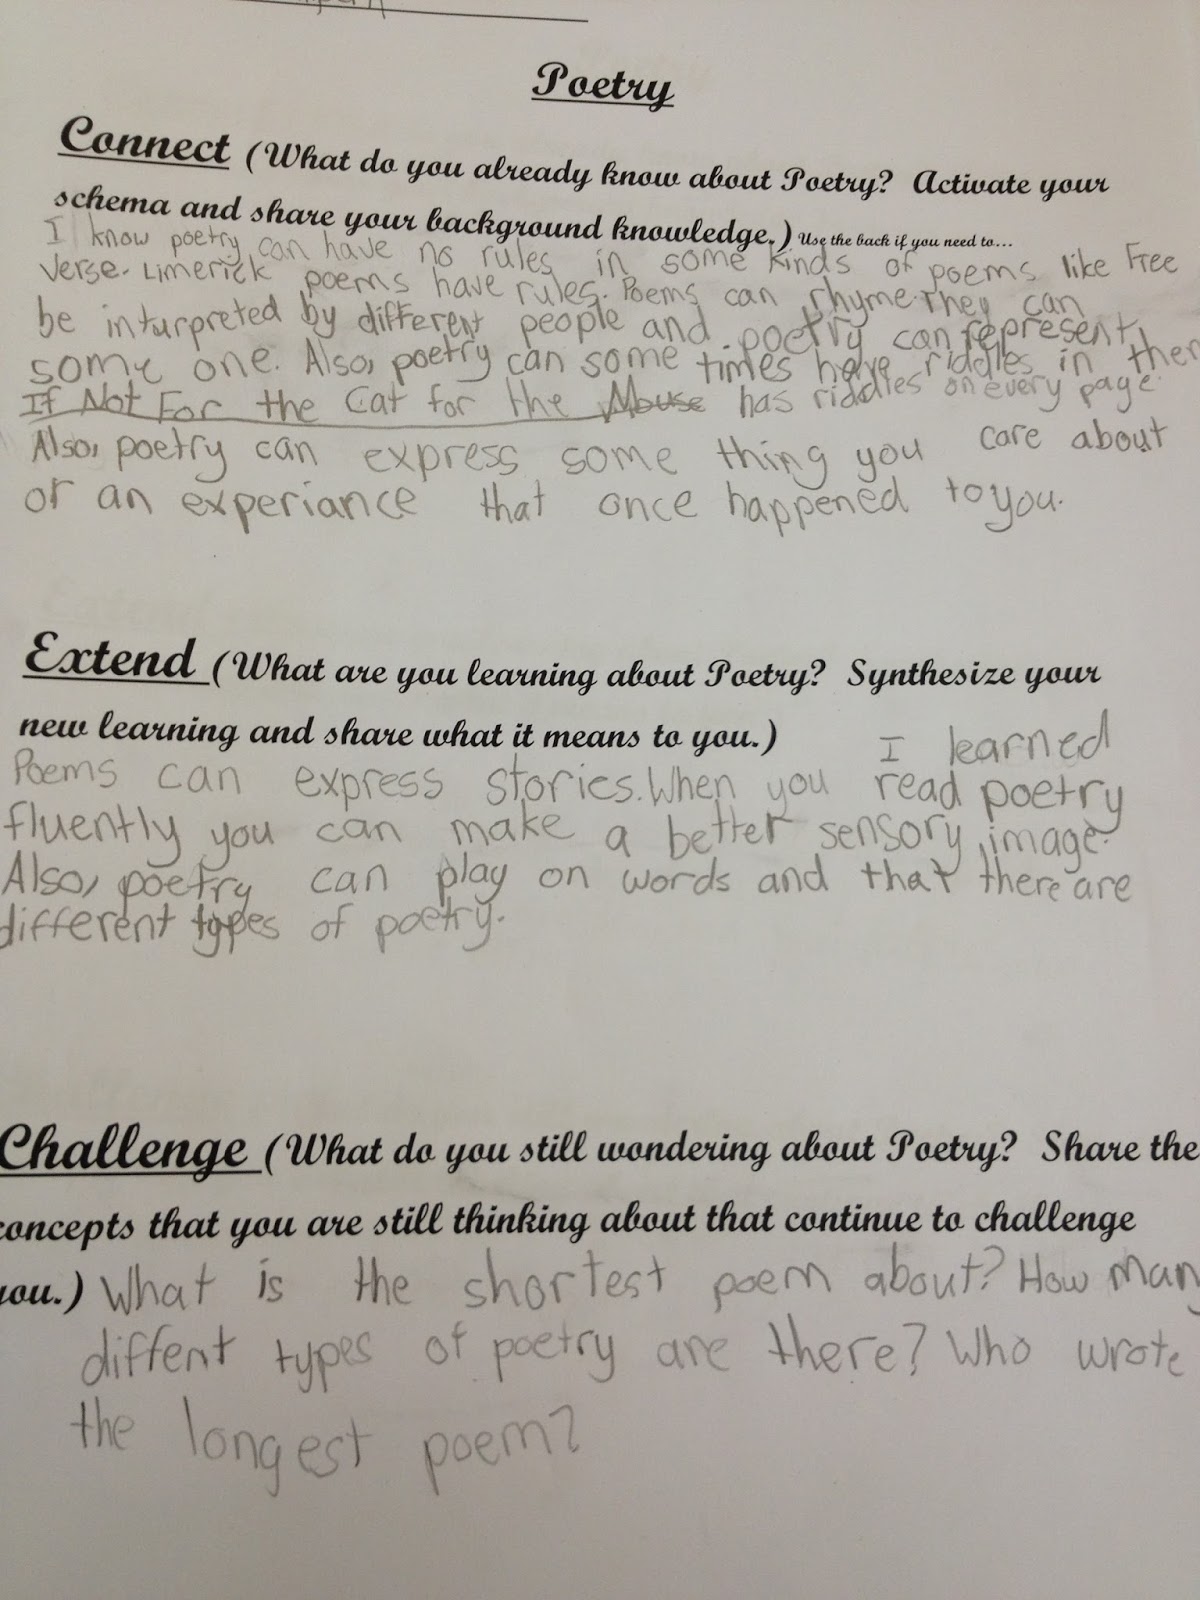 Poetry
Connect (What do you already know about Poetry? Activate your
schema and share your background knowledge.) Use the back if you need to...
I know poetry can have no rules in some kinds of poems like Free
Verse. Limerick poems have rules. Poems can rhyme. They can
be inturpreted by different people and poetry can represent
some one. Also, poetry can some times have riddles in them
If Not For the Cat for the Mouse has riddles on every page.
Also, poetry can express some thing you care about
or an experiance that once happened to you.
Extend (What are you learning about Poetry? Synthesize your
new learning and share what it means to you.) I learned
Poems can express stories. When you read poetry
fluently you can make a better sensory image.
Also, poetry can play on words and that there are
different types of poetry.
Challenge (What do you still wondering about Poetry? Share the
concepts that you are still thinking about that continue to challenge
you.) What is the shortest poem about? How many
diffent types of poetry are there? Who wrote
the longest poem?